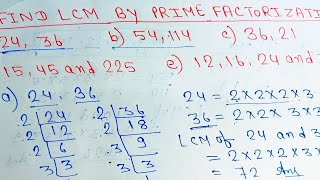 FIND LCM BY PRIME FACTORIZATI
24, 36 b) 54,114 c) 36,21
15, 45 and 225 e) 12,16,24 and
a) 24, 36
2 24 2 36
2 12 2 18
2 6 3 9
3 3 3 3
24 = 2×2×2×3
36 = 2×2×3×3
LCM of 24 and 3
= 2×2×2×3×
= 72 Ans